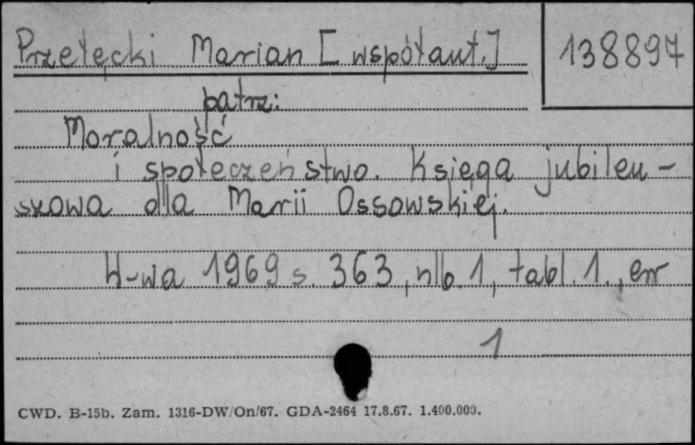 Przełęcki Marian [współaut.]
138897
patrz:
Moralność
i społeczeństwo. Księga jubileu-
szowa dla Marii Ossowskiej.
W-wa 1969 s. 363, nlb. 1, tabl. 1., err
1
CWD. B-15b. Zam. 1316-DW/On/67. GDA-2464 17.8.67. 1.400.000.